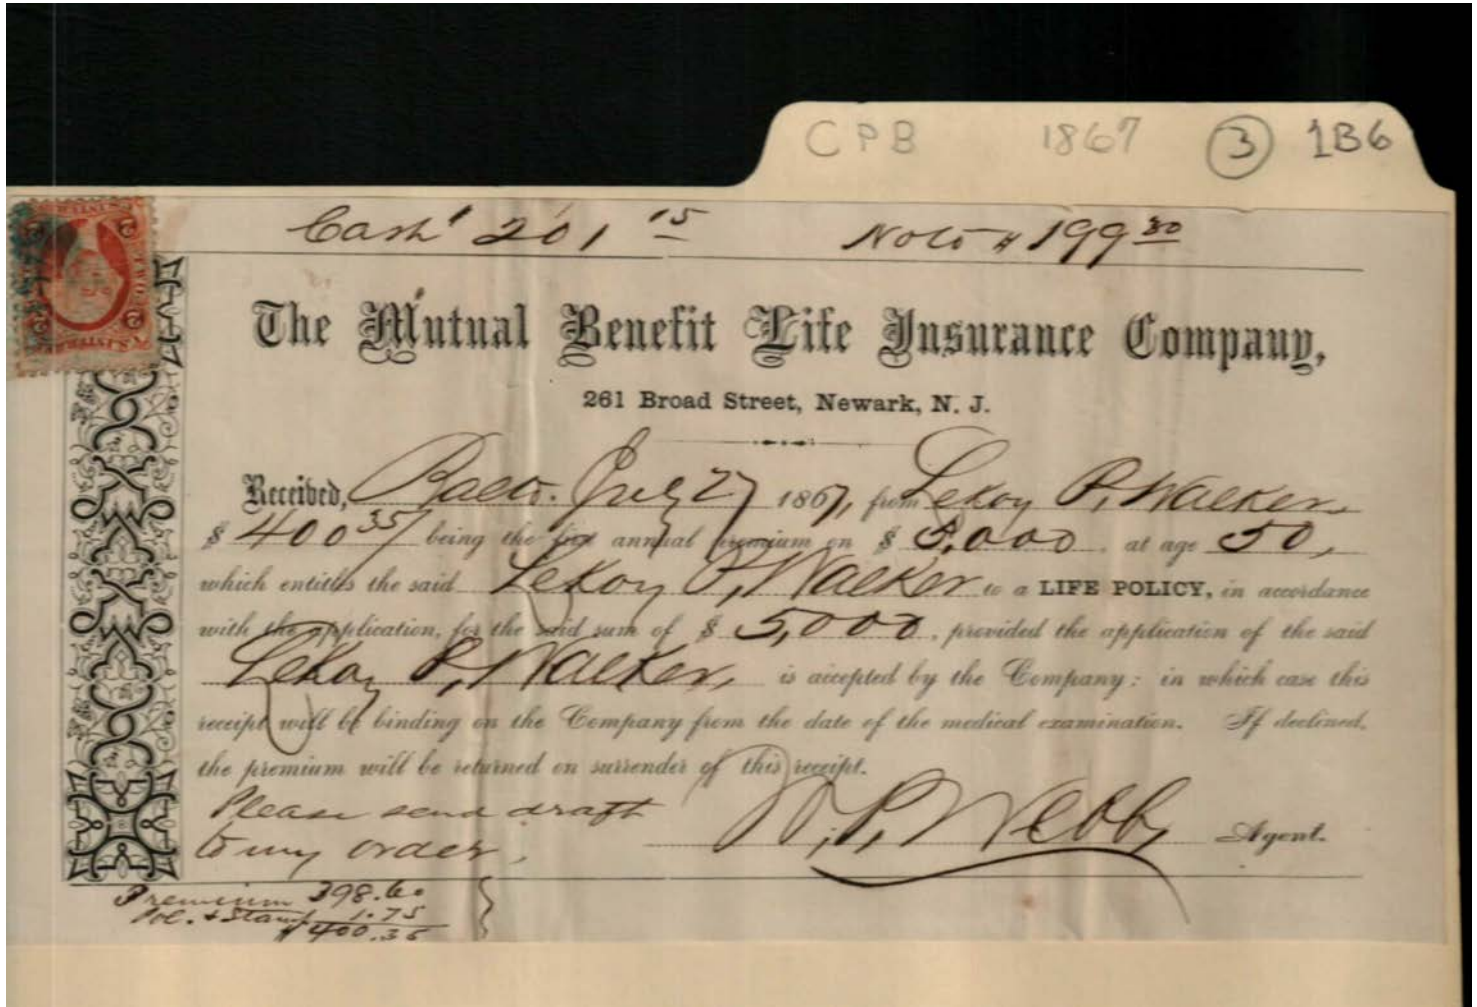 CPB 1867 3 1B6
Cash 201 15 Note $ 199 30
The Mutual Benefit Life Insurance Company,
261 Broad Street, Newark, N. J.
Received, Balto. July 27 1867, from LeRoy P. Walker,
$ 400 35 being the first annual premium on $ 5,000. at age 50,
which entitles the said LeRoy P, Walker to a LIFE POLICY, in accordance
with the application, for the said sum of $ 5,000, provided the application of the said
LeRoy P, Walker, is accepted by the Company: in which case this
receipt will be binding on the Company from the date of the medical examination. If declined,
the premium will be returned on surrender of this receipt.
Please send draft
to my order,
Webb, Agent.
Premium 398.60
Pol. + Stamp 1.75
$ 400.35